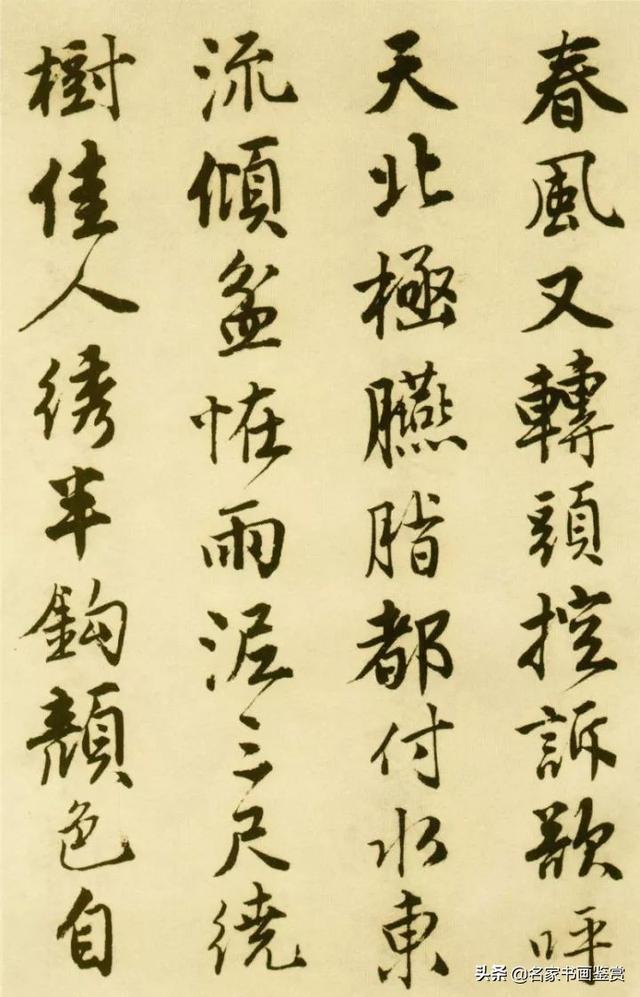 春風又轉頭控訴欲呼
天北極臙脂都付水東
流傾盆恠雨泥三尺繞
樹佳人綉半鈎顏色自
头条 @名家书画鉴赏